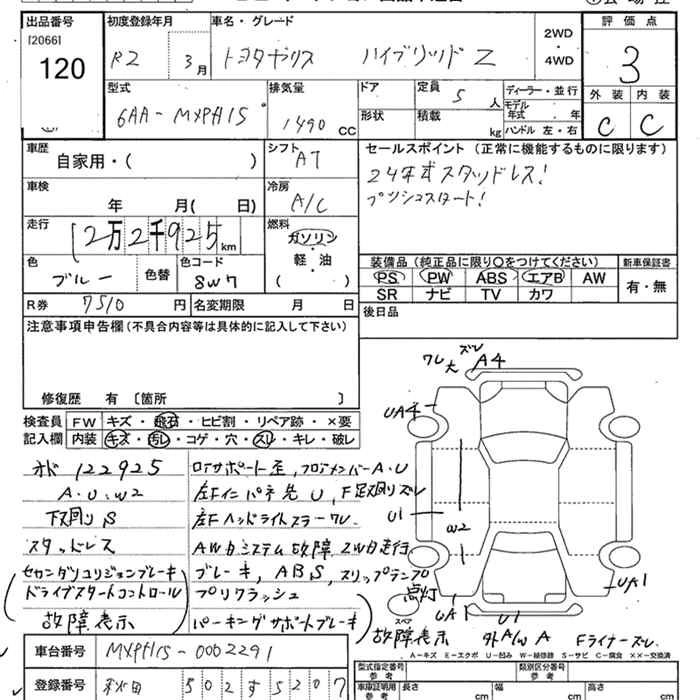 出品番号
[2066]
120
初度登録年月
R2 3月
車名・グレード
トヨタヤリス ハイブリッド Z
2WD
・
4WD
評価点
3
外装 内装
C C
型式
6AA-MXPH15
排気量
1490 CC
ドア
形状
定員 5 人
積載 kg
ディーラー・並行
モデル年式 ・ 年
ハンドル 左・右
車歴
自家用・( )
シフト
AT
セールスポイント (正常に機能するものに限ります)
24年式スタッドレス!
プッシュスタート!
車検
年 月( 日)
冷房
A/C
走行
12万2千925km
燃料
ガソリン
軽・油
( )
装備品 (純正品に限り○をつけてください)
PS PW ABS エアB AW
SR ナビ TV カワ
新車保証書
有・無
色
ブルー
色替
色コード
8W7
R券 7510 円
名変期限 月 日
後日品
注意事項申告欄 (不具合内容等は具体的に記入して下さい)
修復歴 有 〔箇所 〕
検査員
記入欄
FW キズ・飛石・ヒビ割・リペア跡・×要
内装 キズ・汚レ・コゲ・穴・スレ・キレ・破レ
オド 122925
A・U・W2
下回りS
スタッドレス
セカンダリコリジョンブレーキ
ドライブスタートコントロール
故障表示
ロアサポート歪, フロアメンバーA・U
左Fインパネ先 U, F足廻りズレ
左Fヘッドライトステーワレ
AWDシステム故障, 2WD走行
ブレーキ, ABS, スリップランプ点灯
プリクラッシュ
パーキングサポートブレーキ
故障表示
ワレ大 ズレ A4
UA4
U1
W2
UA1
UA1
U1
スペア
外A/W A
Fライナーズレ
A－キズ E－エクボ U－凹み W－補修跡 S－サビ C－腐食 ××－交換済
車台番号 MXPH15-0002291
登録番号 秋田 502す5207
型式指定番号
参考
類別区分番号
参考
車庫証明用
参考
長さ cm
幅 cm
高さ cm